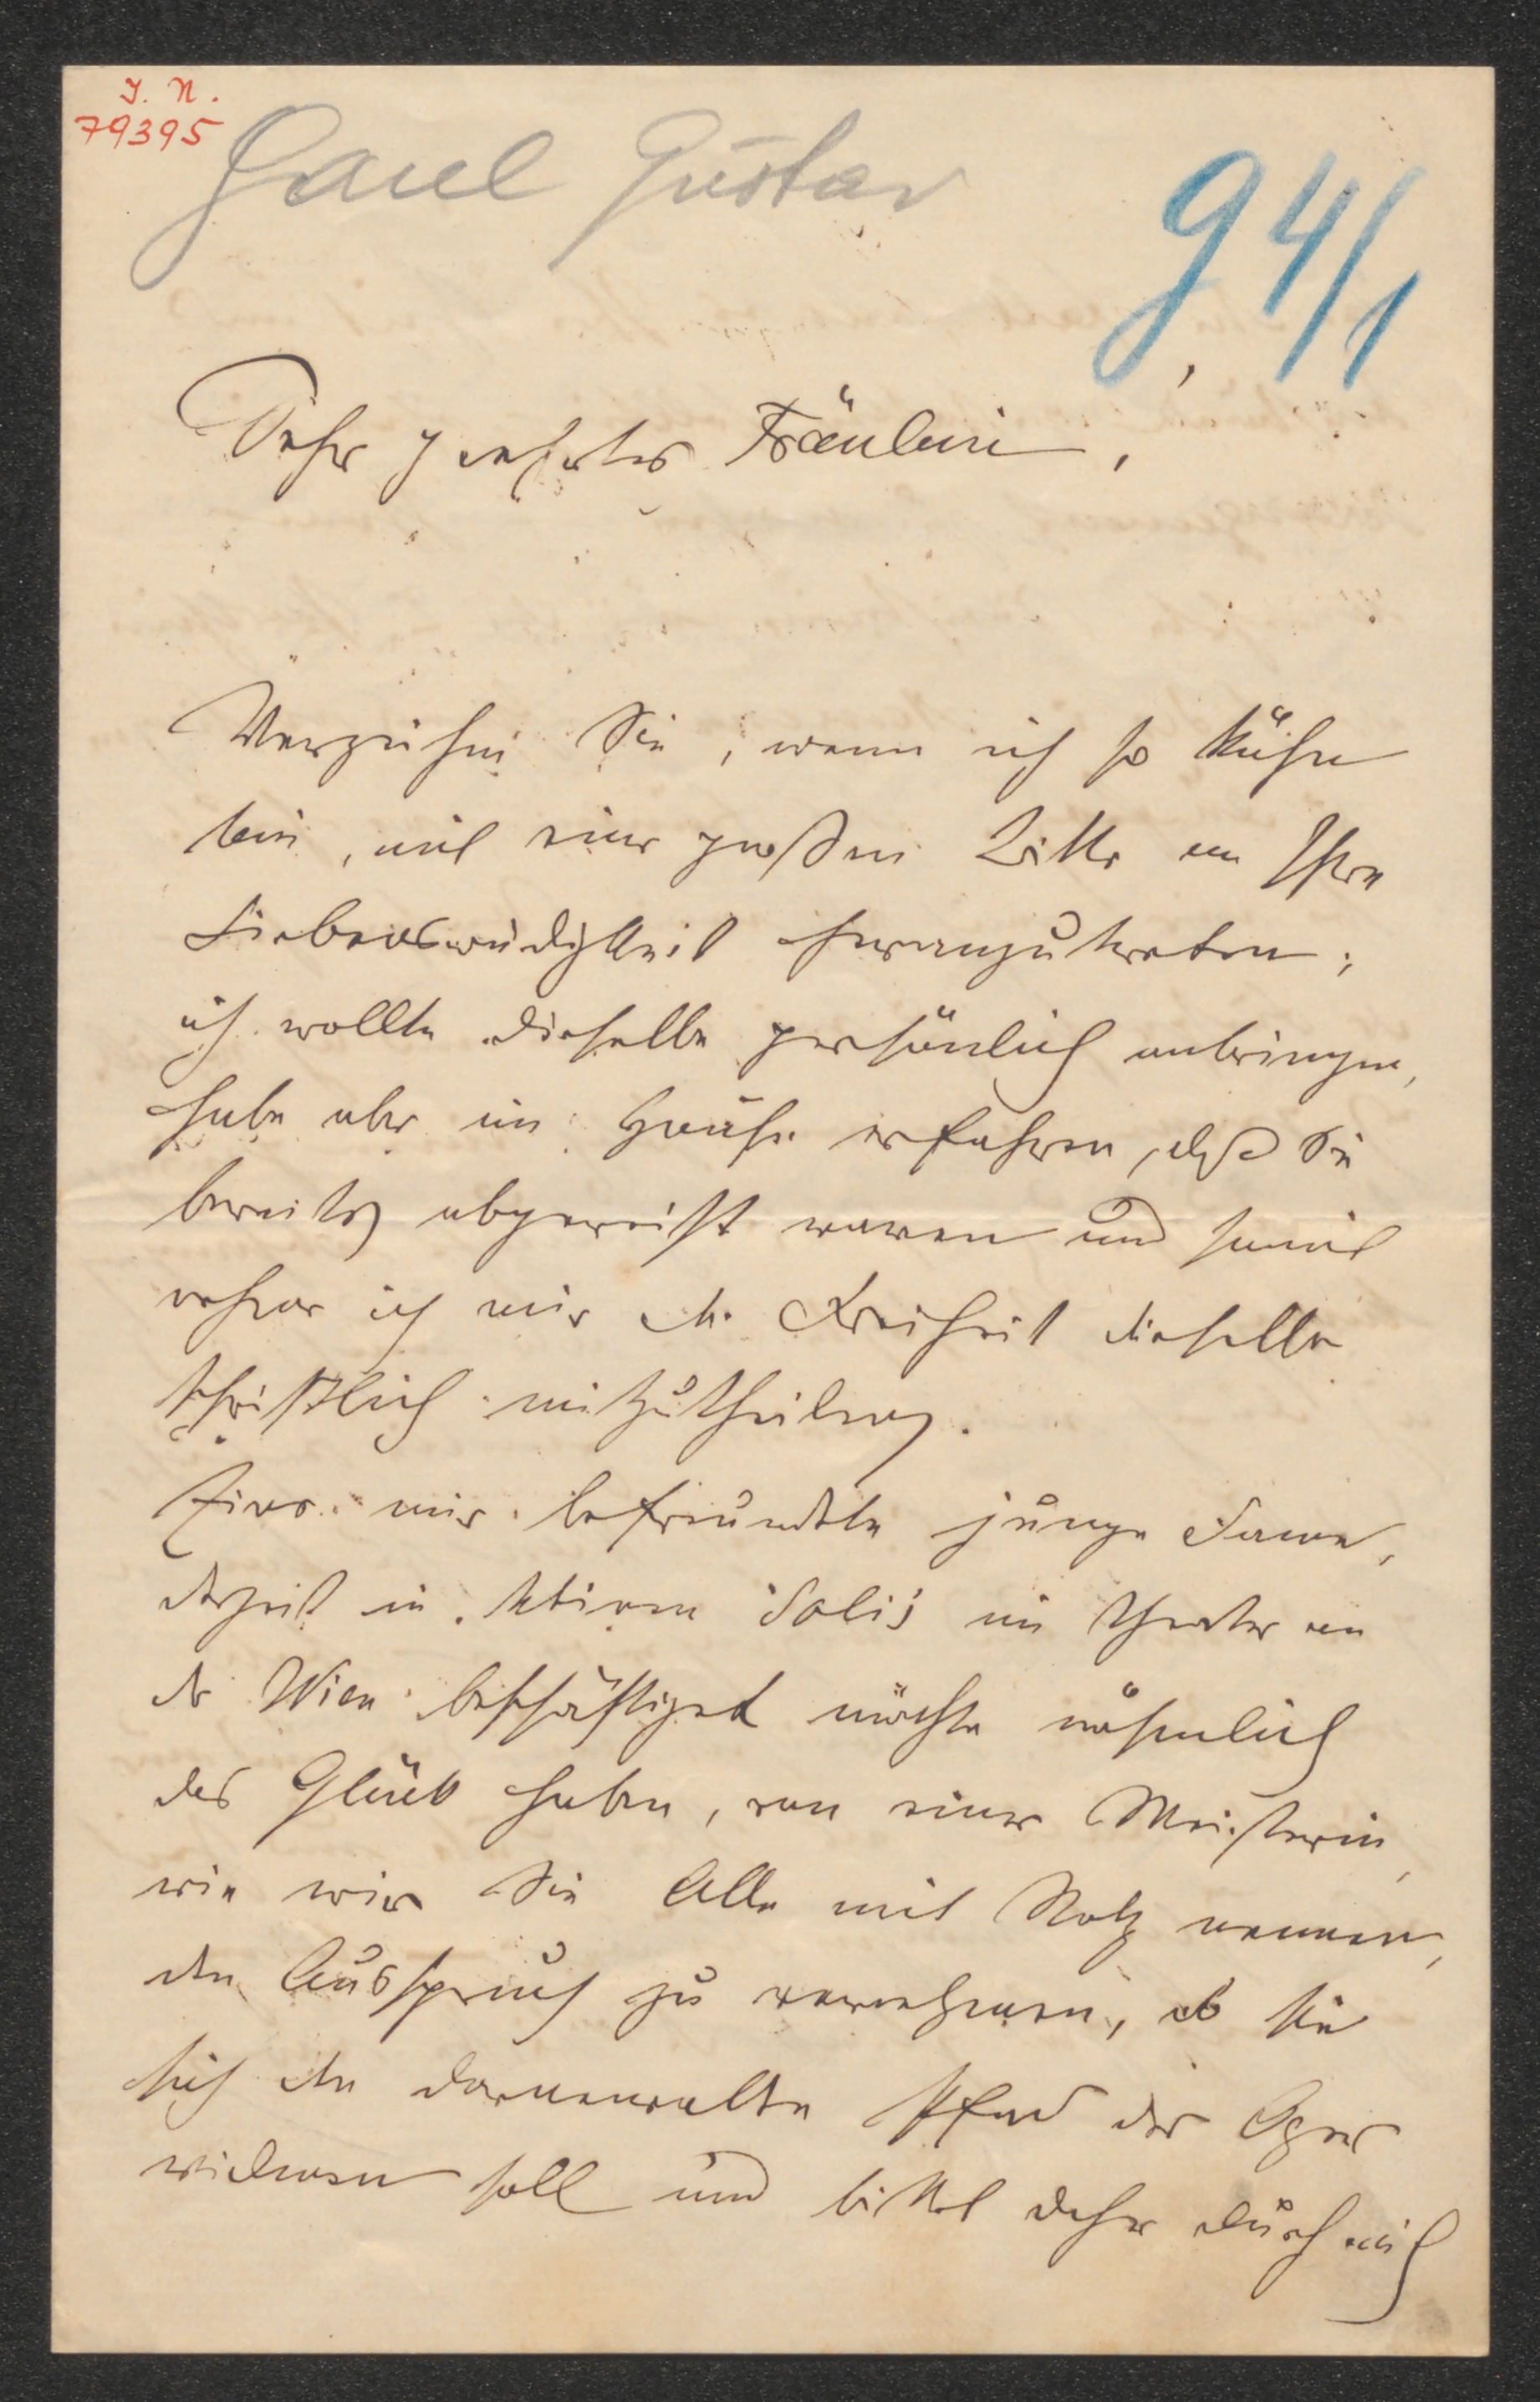 I. N.
79395
Gaul Gustav
94/1
Sehr geehrtes Fräulein,
Verzeihen Sie, wenn ich so kühn
bin, mit einer großen Bitte an Ihre
Liebenswürdigkeit heranzutreten;
ich wollte dieselbe persönlich anbringen,
habe aber im Hause erfahren, daß Sie
bereits abgereist waren und somit
nehme ich mir die Freiheit dieselbe
schriftlich mitzutheilen.
Eine mir befreundete junge Dame,
derzeit in kleinen Solis im Theater an
der Wien beschäftiget möchte nähmlich
das Glück haben, von einer Meisterin,
wie wir Sie Alle mit Stolz nennen,
den Ausspruch zu vernehmen, ob sie
sich dem dornenvollen Pfad der Oper
widmen soll und bittet daher durch mich